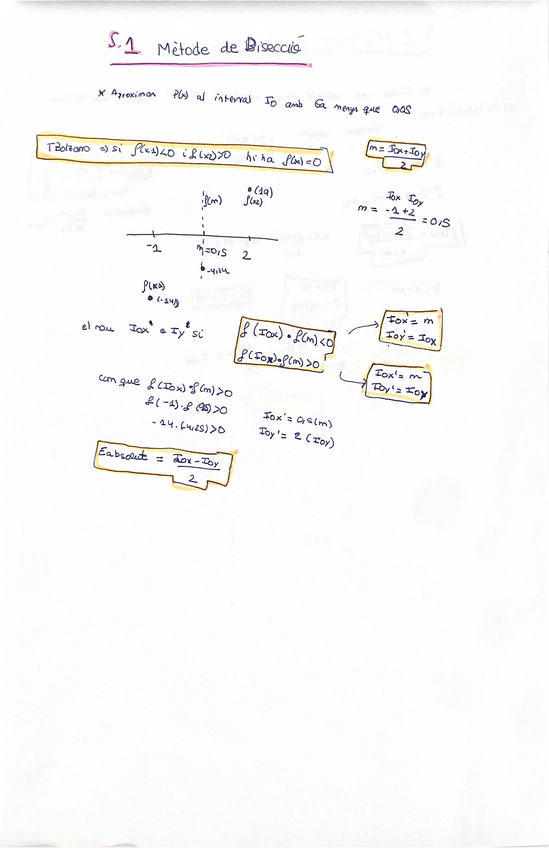 5.1 Mètode de Bisecció
* Aproximar P(x) al interval I0 amb Ea menys que 0,05
TBolzano => si f(x1)<0 i f(x2)>0 hi ha f(x)=0
m = I0x+I0y / 2
f(m)
(19)
f(x2)
I0x I0y
m = -1+2 / 2 = 0,5
-1 m=0,5 2
-4,25
(-14)
el nou I0x' e Iy' si
f(I0x)·f(m)<0
f(I0x)·f(m)>0
I0x' = m
I0y' = I0x
I0x' = m
I0y' = I0y
com que f(I0x)·f(m)>0
f(-1)·f( )>0
-14·(-4,25)>0
I0x' = 0,5(m)
I0y' = 2 (I0y)
Eabsolut = I0x-I0y / 2